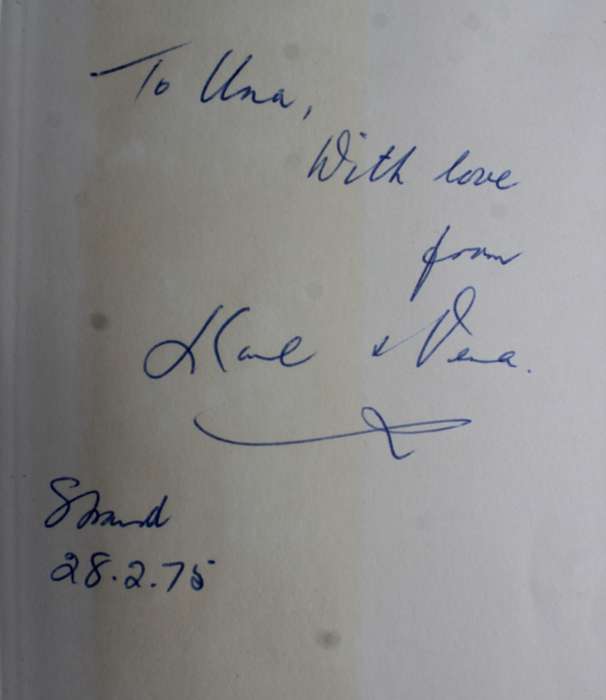 To Una,
With love
from
Karl & Vena.
Strand
28.2.75